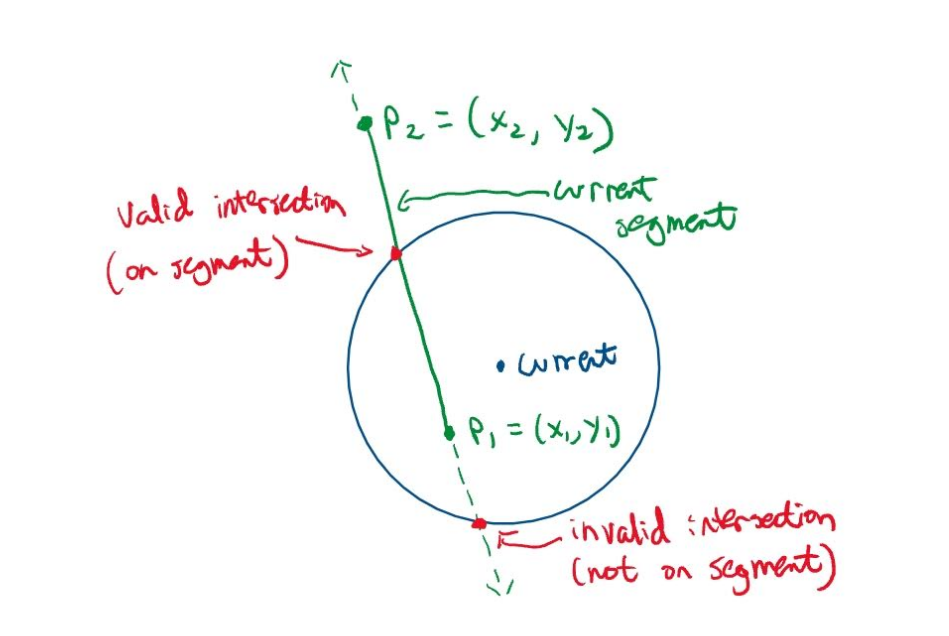 P₂ = (x₂, y₂)
current
segment
Valid intersection
(on segment)
current
P₁ = (x₁, y₁)
invalid intersection
(not on segment)